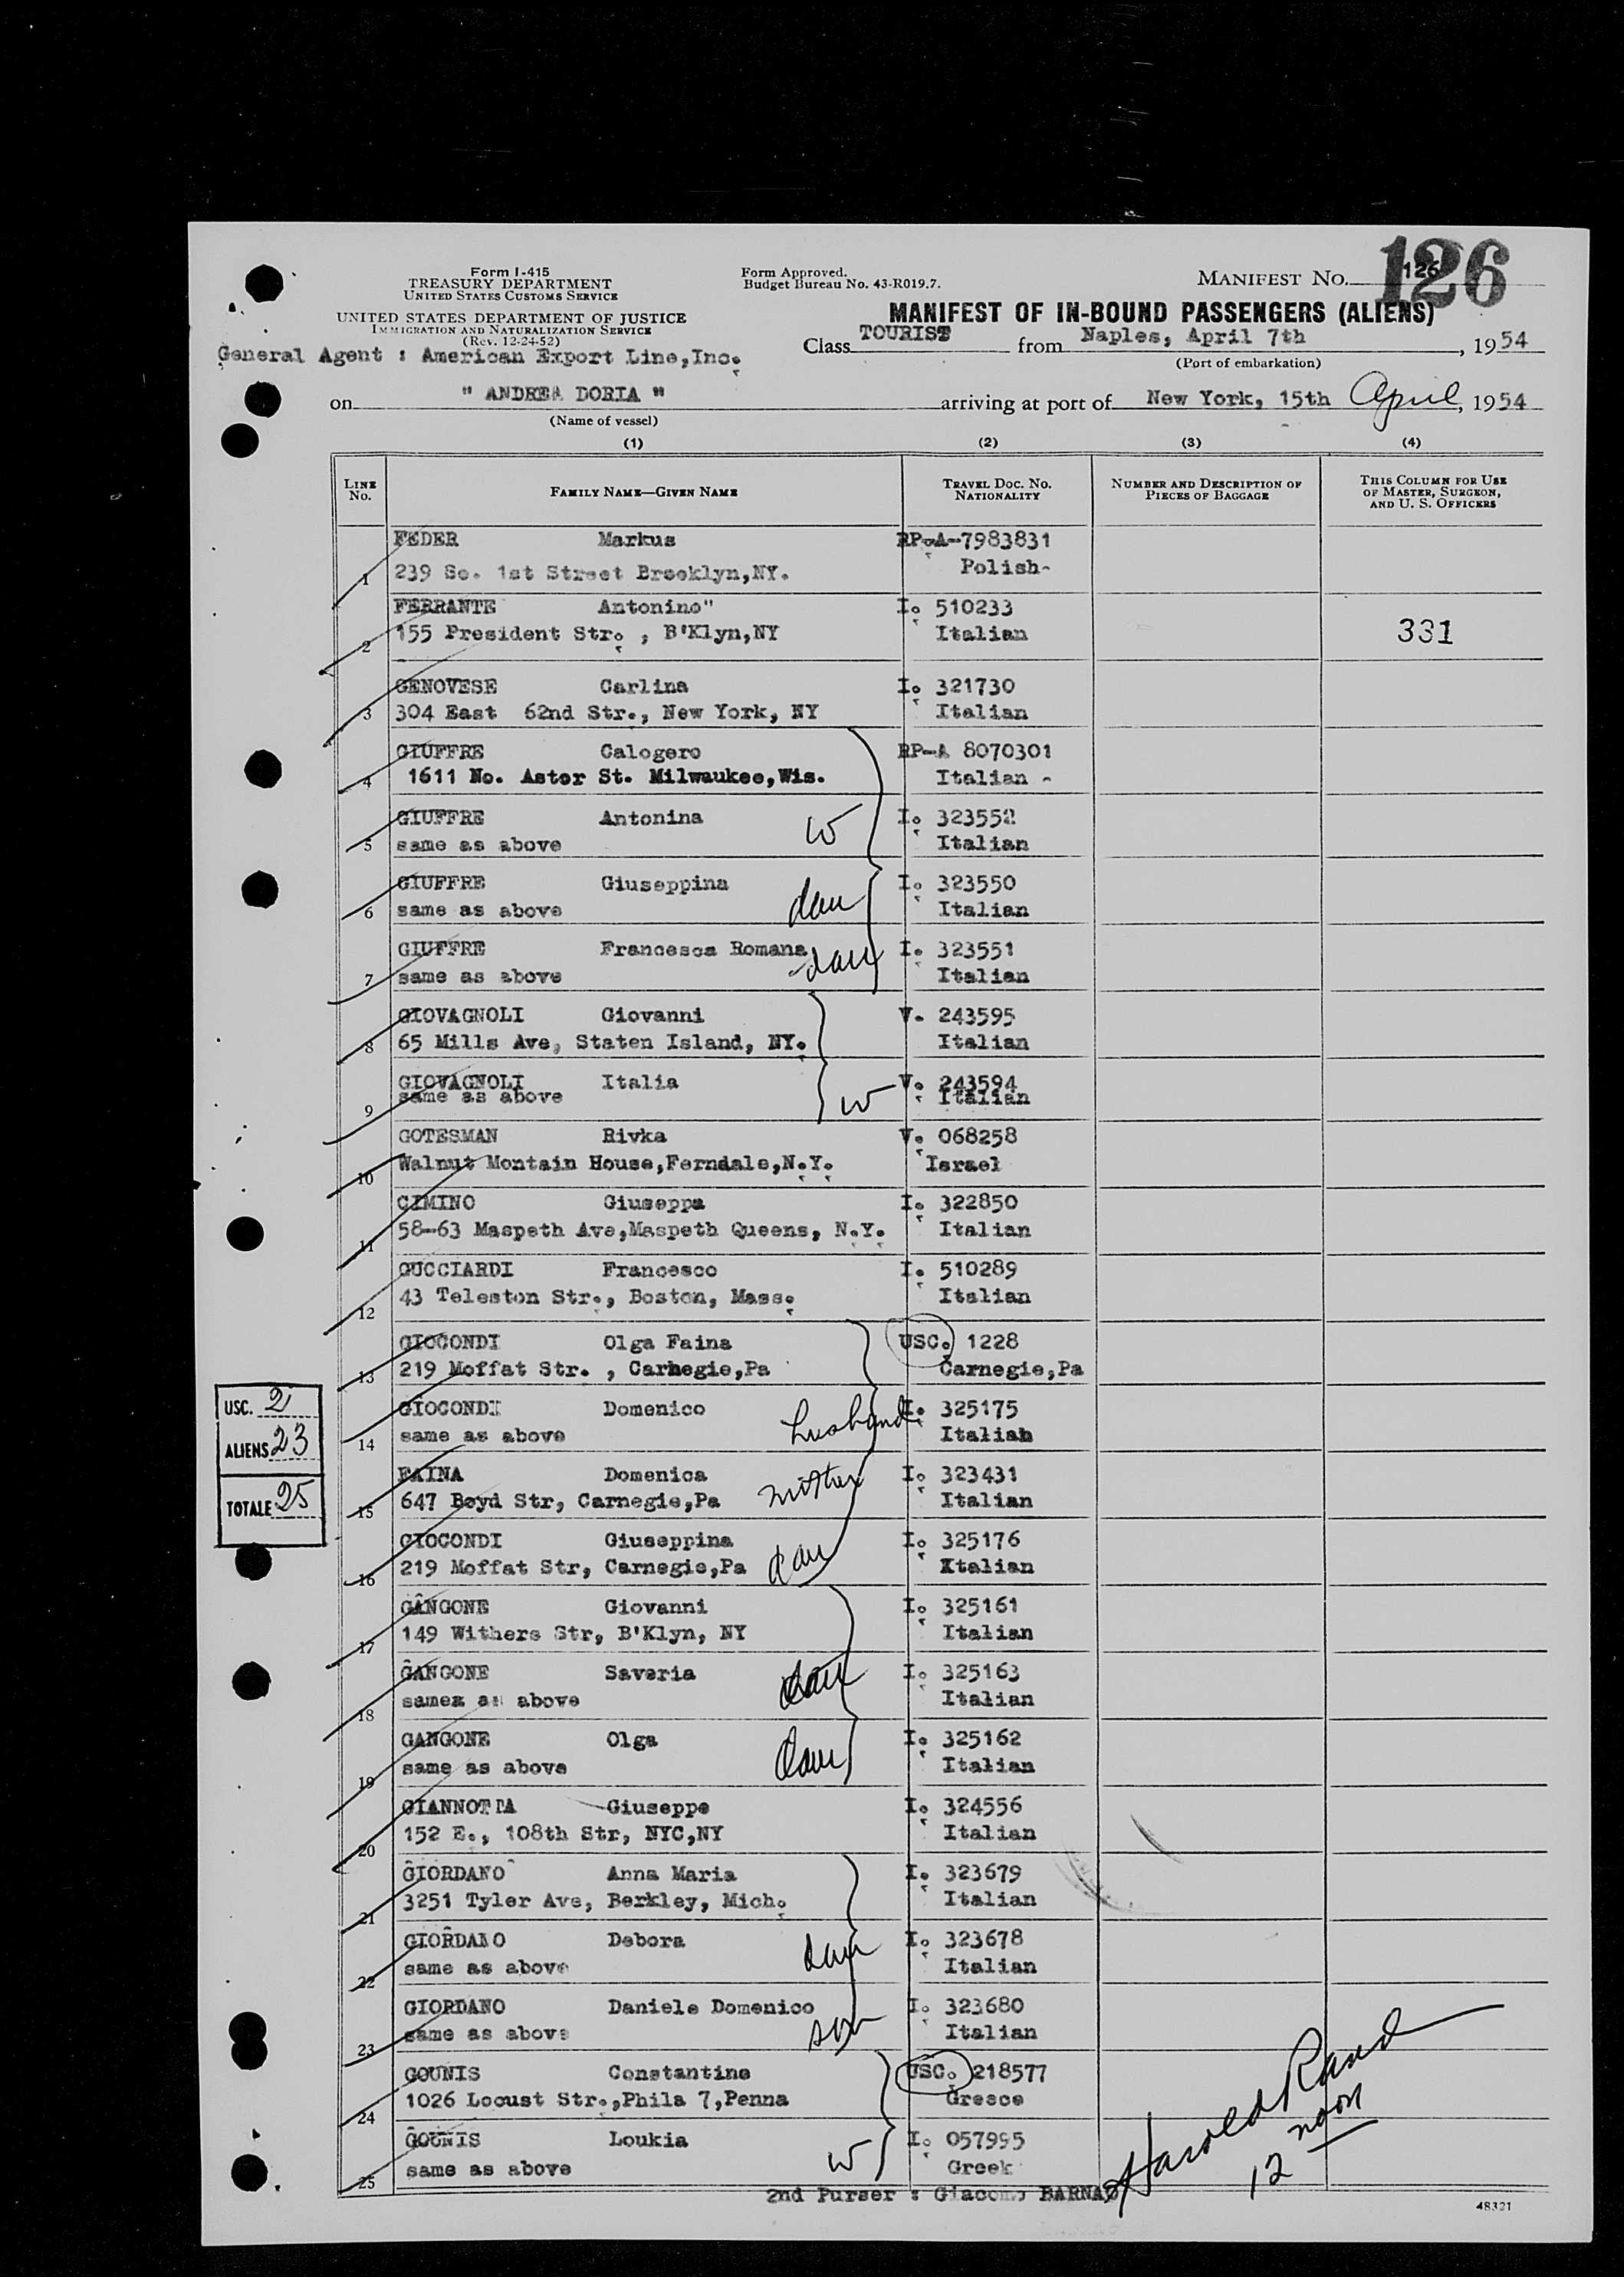 126
Form I-415
TREASURY DEPARTMENT
UNITED STATES CUSTOMS SERVICE
UNITED STATES DEPARTMENT OF JUSTICE
IMMIGRATION AND NATURALIZATION SERVICE
(Rev. 12-24-52)
Form Approved.
Budget Bureau No. 43-R019.7.
MANIFEST NO. 126
MANIFEST OF IN-BOUND PASSENGERS (ALIENS)
General Agent : American Export Line,Inc.
Class TOURIST from Naples, April 7th, 1954
(Port of embarkation)
on " ANDREA DORIA " arriving at port of New York, 15th April, 1954
(Name of vessel)
(1) (2) (3) (4)
LINE No. FAMILY NAME—GIVEN NAME TRAVEL DOC. NO. NATIONALITY NUMBER AND DESCRIPTION OF PIECES OF BAGGAGE THIS COLUMN FOR USE OF MASTER, SURGEON, AND U. S. OFFICERS
FEDER Markus RP-A-7983831
1 239 So. 1st Street Brooklyn,NY. Polish-
FERRANTE Antonino" I. 510233
2 155 President Str. , B'Klyn,NY Italian 331
GENOVESE Carlina I. 321730
3 304 East 62nd Str., New York, NY Italian
GIUFFRE Calogero RP-A 8070301
4 1611 No. Astor St. Milwaukee,Wis. Italian -
GIUFFRE Antonina W I. 323552
5 same as above Italian
GIUFFRE Giuseppina dau I. 323550
6 same as above Italian
GIUFFRE Francesca Romana dau I. 323551
7 same as above Italian
GIOVAGNOLI Giovanni V. 243595
8 65 Mills Ave, Staten Island, NY. Italian
GIOVAGNOLI Italia W V. 243594
9 same as above Italian
GOTESMAN Rivka V. 068258
10 Walnut Montain House,Ferndale,N.Y. Israel
CIMINO Giuseppa I. 322850
11 58-63 Maspeth Ave,Maspeth Queens, N.Y. Italian
GUCCIARDI Francesco I. 510289
12 43 Teleston Str., Boston, Mass. Italian
GIOCONDI Olga Faina USC. 1228
13 219 Moffat Str. , Carnegie,Pa Carnegie,Pa
GIOCONDI Domenico husband I. 325175
14 same as above Italian
FAINA Domenica mother I. 323431
15 647 Boyd Str, Carnegie,Pa Italian
GIOCONDI Giuseppina dau I. 325176
16 219 Moffat Str, Carnegie,Pa Italian
GANGONE Giovanni I. 325161
17 149 Withers Str, B'Klyn, NY Italian
GANGONE Saveria dau I. 325163
18 samea as above Italian
GANGONE Olga dau I. 325162
19 same as above Italian
GIANNOTTA Giuseppe I. 324556
20 152 E., 108th Str, NYC,NY Italian
GIORDANO Anna Maria I. 323679
21 3251 Tyler Ave, Berkley, Mich. Italian
GIORDANO Debora dau I. 323678
22 same as above Italian
GIORDANO Daniele Domenico son I. 323680
23 same as above Italian
GOUNIS Constantine USC. 218577
24 1026 Locust Str.,Phila 7,Penna Greece
GOUNIS Loukia W I. 057995
25 same as above Greek
USC. 2
ALIENS 23
TOTALE 25
Harold Rand
12 noon
2nd Purser : Giacomo BARNAO
48321